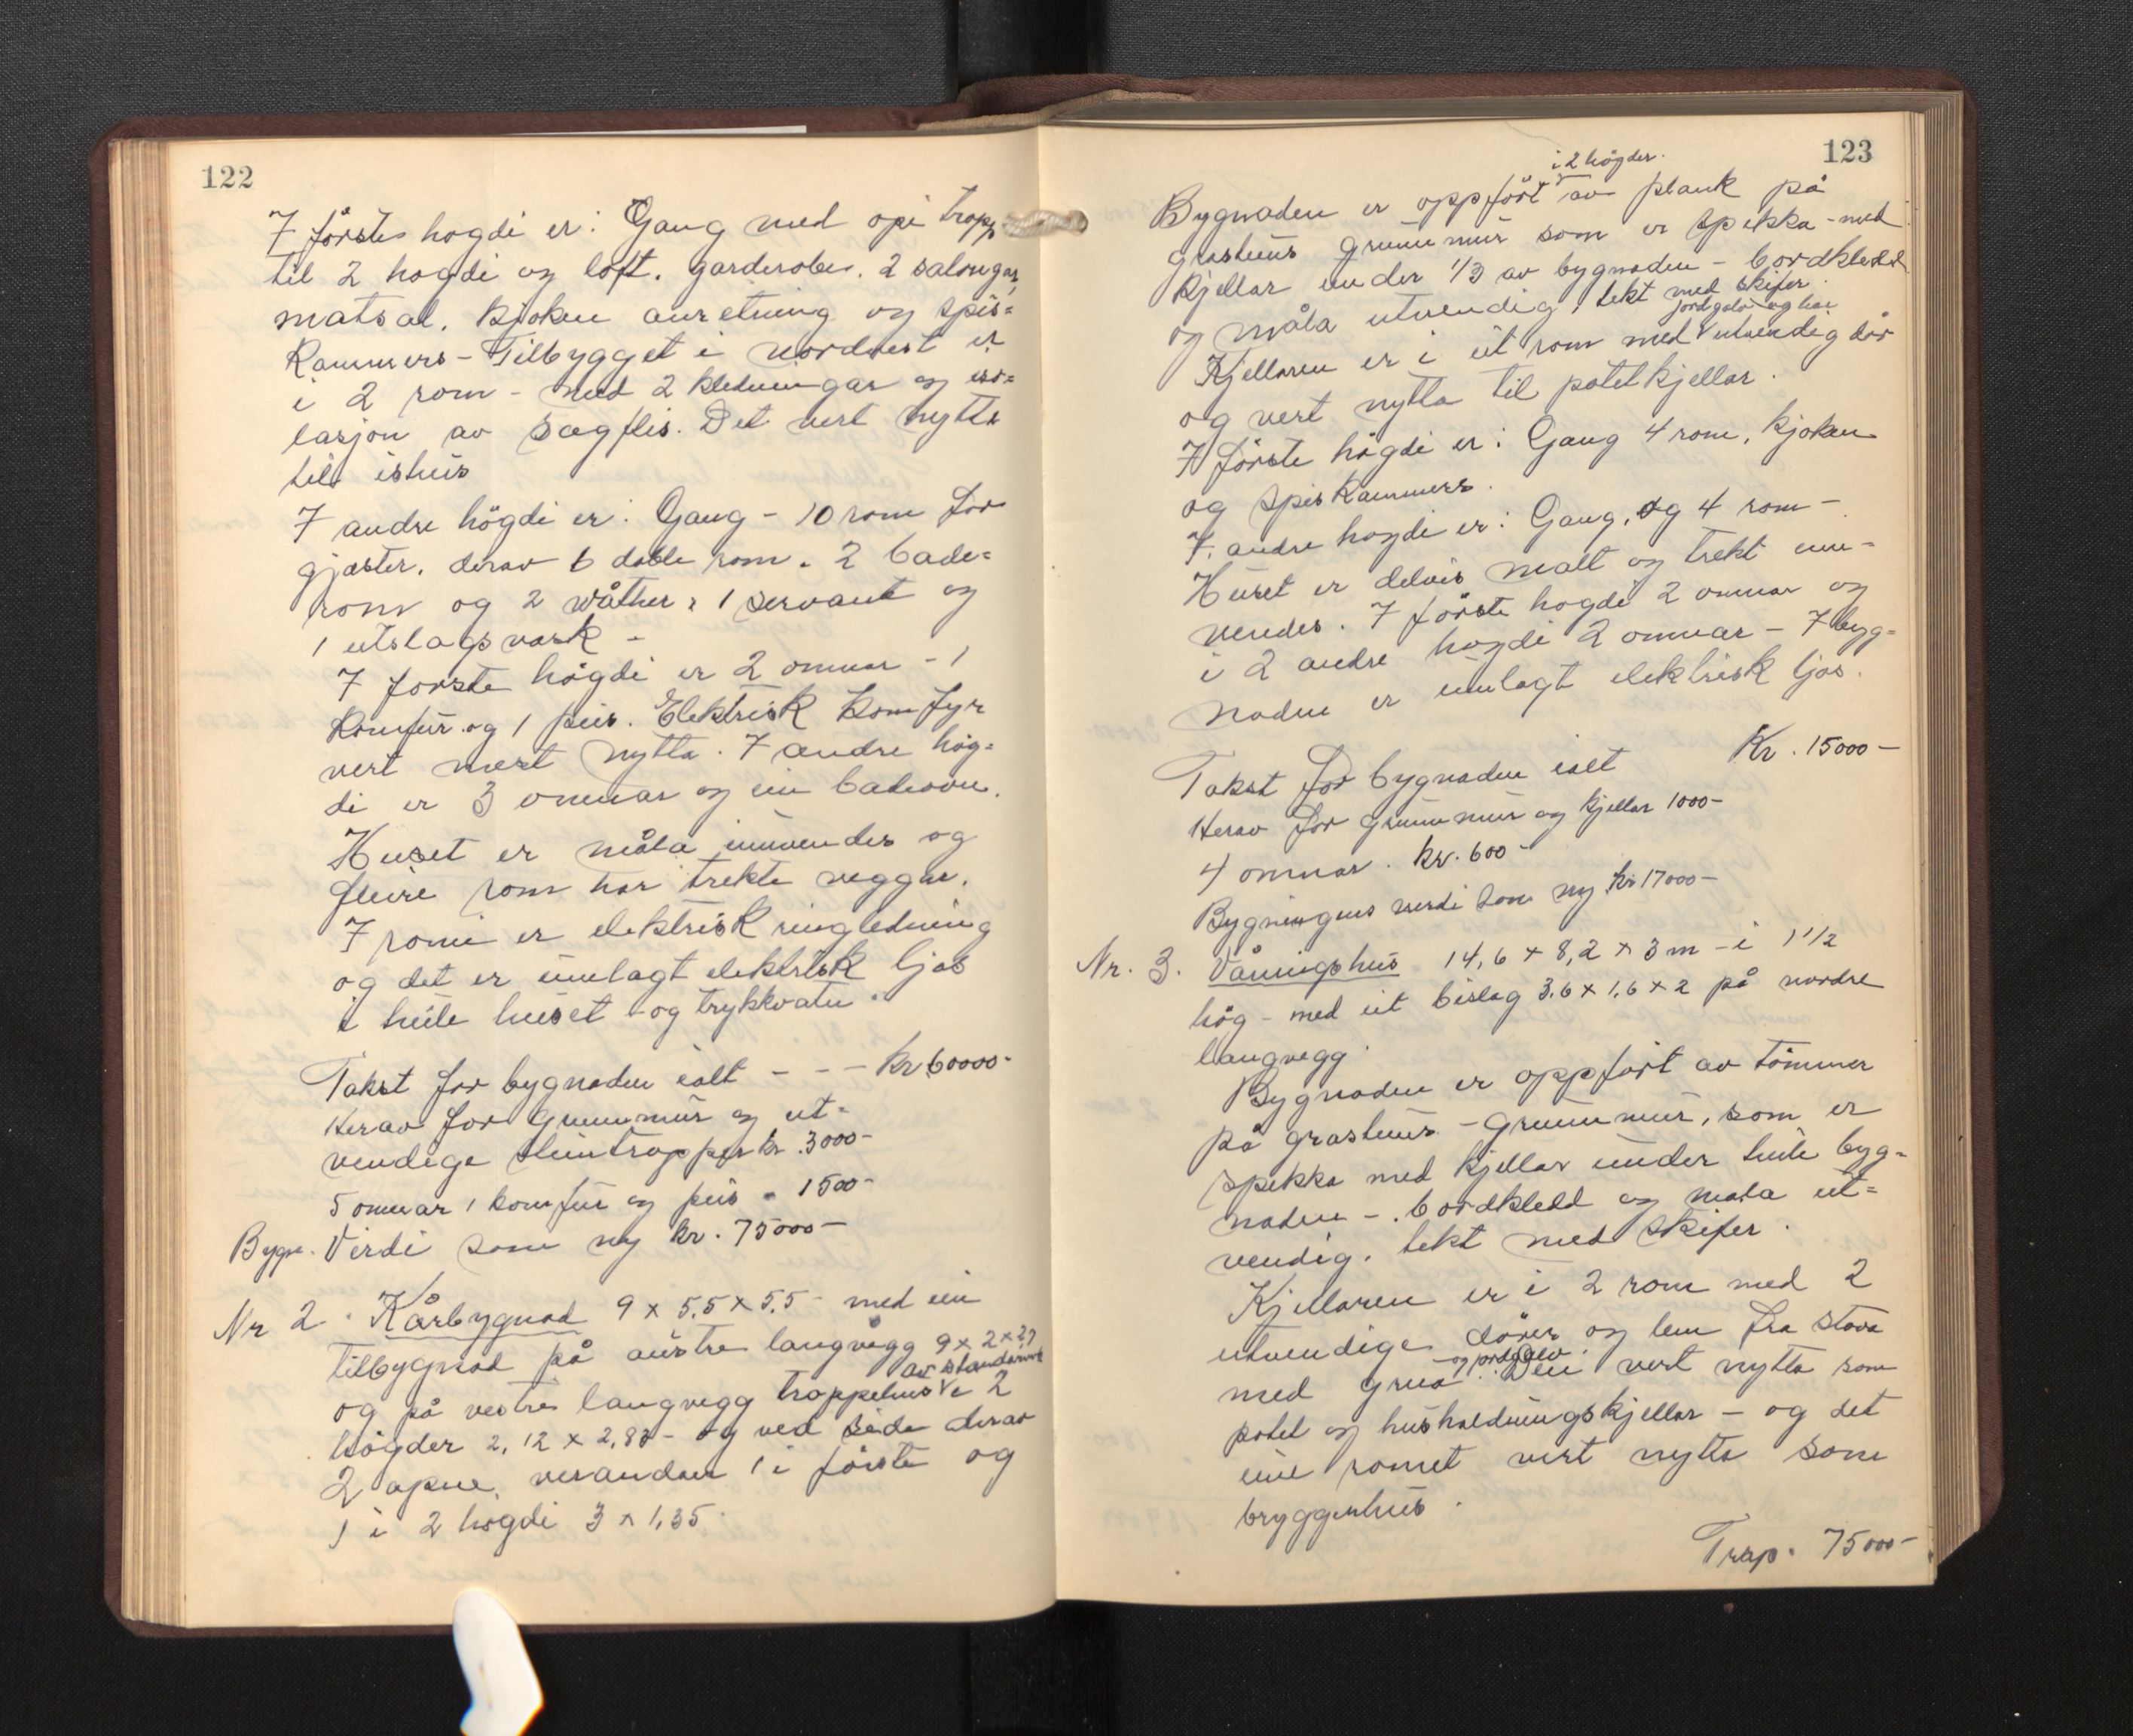 122
I förste hogdi er: Gang med opi trapp
til 2 hogdi og loft. garderobe. 2 salongar,
matsal. kjöken anretning og spis=
kammers - Tilbygget i nordvest er
i 2 rom - med 2 kledningar og iso=
lasjon av sagflis. Det vert nytta
til ishus
I andre högdi er: Gang - 10 rom for
gjæster. derav 6 doble rom. 2 bade=
rom og 2 wåther, 1 servant og
1 utslagsvask -
I forste högdi er 2 omnar - 1
komfur og 1 peis. Elektrisk komfyr
vert mest nytta. I andre hög=
di er 3 omnar og ein badeovn.
Huset er måla innvendes og
fleire rom har trekte veggar.
I romi er elektrisk ringledning
og det er innlagt elektrisk ljos
i heile huset - og trykkvatn.
Takst for bygnaden ialt - - - kr 60000-
Herav for grunnmur og ut=
vendige steintrapper kr. 3000-
5 omnar 1 komfur og peis " 1500-
Bygn. Verdi som ny kr. 75000-
Nr 2. Kårbygnad 9 x 5,5 x 5,5 - med ein
tilbygnad på austre langvegg 9 x 2 x 2,7
av standarverk
og på vestre langvegg trappehus i 2
högder 2,12 x 2,83 - og ved side derav
2 apne verandaer 1 i förste og
1 i 2 hogdi 3 x 1,35.
123
i 2 högder.
Bygnaden er oppfört av plank på
grasteins grunnmur som er spekka - med
kjellar under 1/3 av bygnaden - bordkledd
og måla utvendig, tekt med skifer.
jordgolv og har
Kjellaren er i eit rom med utvendig dör
og vert nytta til potetkjellar.
I förste högdi er: Gang 4 rom, kjöken
og spiskammers.
I andre hogdi er: Gang, og 4 rom -
Huset er delvis malt og trekt inn=
vendes. I förste hogdi 2 omnar og
i 2 andre hogdi 2 omnar - I byg=
naden er innlagt elektrisk ljos.
Takst for bygnaden ialt Kr. 15000-
Herav for grunnmur og kjellar 1000-
4 omnar. kr. 600-
Bygningens verdi som ny kr 17000-
Nr. 3. Våningshus 14,6 x 8,2 x 3 m - i 1 1/2
hög - med eit bislag 3,6 x 1,6 x 2 på nordre
langvegg.
Bygnaden er oppfört av tömmer
på grasteins - grunnmur, som er
spekka med kjellar under heile byg=
naden -. bordkledd og mala ut=
vendig. tekt med skifer.
Kjellaren er i 2 rom med 2
utvendige dörer og lem fra stova
og jordgolv.
med grua. Den vert nytta som
potet og husholdningskjellar - og det
eine romet vert nytta som
bryggerhus.
Trsp. 75000-